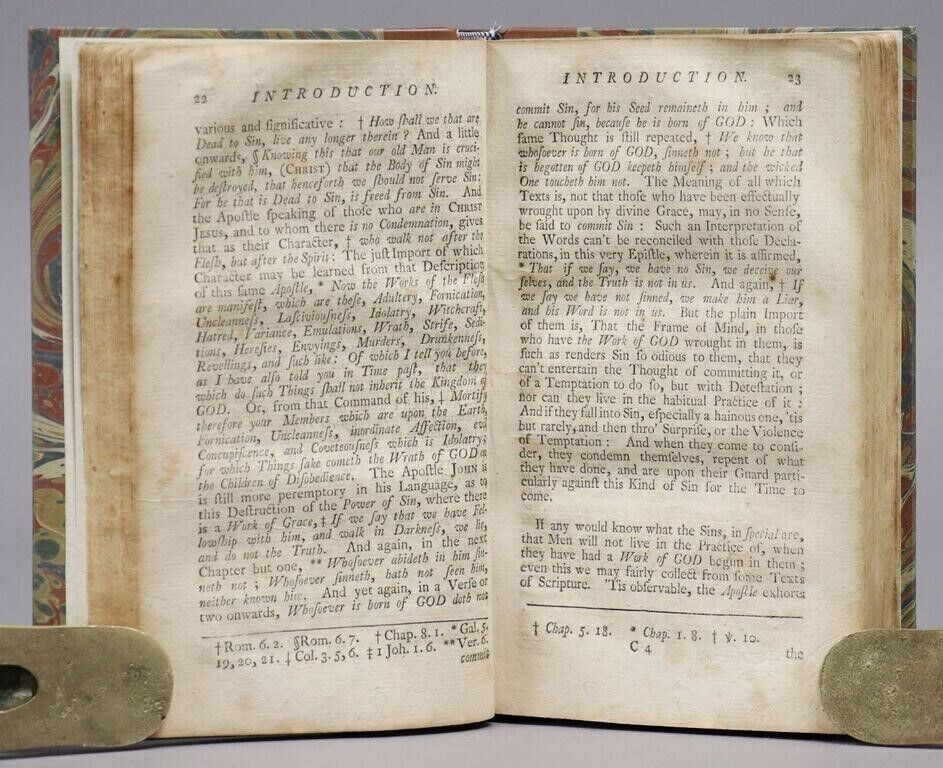 22 INTRODUCTION.
various and significative : † How ſhall we that are
Dead to Sin, live any longer therein ? And a little
onwards, § Knowing this that our old Man is cruci-
fied with him, (CHRIST) that the Body of Sin might
be deſtroyed, that henceforth we ſhould not ſerve Sin:
For he that is Dead to Sin, is freed from Sin. And
the Apoſtle ſpeaking of thoſe who are in CHRIST
JESUS, and to whom there is no Condemnation, gives
that as their Character, † who walk not after the
Fleſh, but after the Spirit: The juſt Import of which
Character may be learned from that Deſcription
of this ſame Apoſtle, * Now the Works of the Fleſh
are manifeſt, which are theſe, Adultery, Fornication,
Uncleanneſs, Laſciviouſneſs, Idolatry, Witchcraft,
Hatred, Variance, Emulations, Wrath, Strife, Sedi-
tions, Hereſies, Envyings, Murders, Drunkenneſs,
Revellings, and ſuch like: Of which I tell you before,
as I have alſo told you in Time paſt, that they
which do ſuch Things ſhall not inherit the Kingdom of
GOD. Or, from that Command of his, ⸸ Mortify
therefore your Members which are upon the Earth,
Fornication, Uncleanneſs, inordinate Affection, evil
Concupiſcence, and Coveteouſneſs which is Idolatry;
for which Things ſake cometh the Wrath of GOD on
the Children of Diſobedience. The Apoſtle JOHN is
is ſtill more peremptory in his Language, as to
this Deſtruction of the Power of Sin, where there
is a Work of Grace, ‡ If we ſay that we have Fel-
lowſhip with him, and walk in Darkneſs, we lie,
and do not the Truth. And again, in the next
Chapter but one, ** Whoſoever abideth in him ſin-
neth not ; Whoſoever ſinneth, hath not ſeen him,
neither known him. And yet again, in a Verſe or
two onwards, Whoſoever is born of GOD doth not
† Rom. 6. 2. § Rom. 6. 7. † Chap. 8. 1. * Gal. 5.
19, 20, 21. ⸸ Col. 3. 5, 6. ‡ 1 Joh. 1. 6. ** Ver. 6.
commit
INTRODUCTION. 23
commit Sin, for his Seed remaineth in him ; and
he cannot ſin, becauſe he is born of GOD : Which
ſame Thought is ſtill repeated, † We know that
whoſoever is born of GOD, ſinneth not ; but he that
is begotten of GOD keepeth himſelf ; and the wicked
One toucheth him not. The Meaning of all which
Texts is, not that thoſe who have been effectually
wrought upon by divine Grace, may, in no Senſe,
be ſaid to commit Sin : Such an Interpretation of
the Words can't be reconciled with thoſe Decla-
rations, in this very Epiſtle, wherein it is affirmed,
* That if we ſay, we have no Sin, we deceive our
ſelves, and the Truth is not in us. And again, † If
we ſay we have not ſinned, we make him a Liar,
and his Word is not in us. But the plain Import
of them is, That the Frame of Mind, in thoſe
who have the Work of GOD wrought in them, is
ſuch as renders Sin ſo odious to them, that they
can't entertain the Thought of committing it, or
of a Temptation to do ſo, but with Deteſtation ;
nor can they live in the habitual Practice of it :
And if they fall into Sin, eſpecially a hainous one, 'tis
but rarely, and then thro' Surpriſe, or the Violence
of Temptation : And when they come to conſi-
der, they condemn themſelves, repent of what
they have done, and are upon their Guard parti-
cularly againſt this Kind of Sin for the Time to
come.
If any would know what the Sins, in ſpecial are,
that Men will not live in the Practice of, when
they have had a Work of GOD begun in them ;
even this we may fairly collect from ſome Texts
of Scripture. 'Tis obſervable, the Apoſtle exhorts
† Chap. 5. 18. * Chap. 1. 8. † ℣. 10.
C 4 the